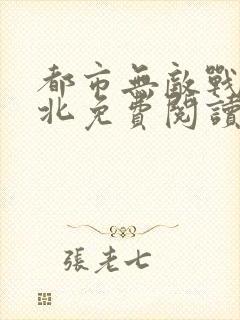 都市無敵戰
北免費閱讀
張老七